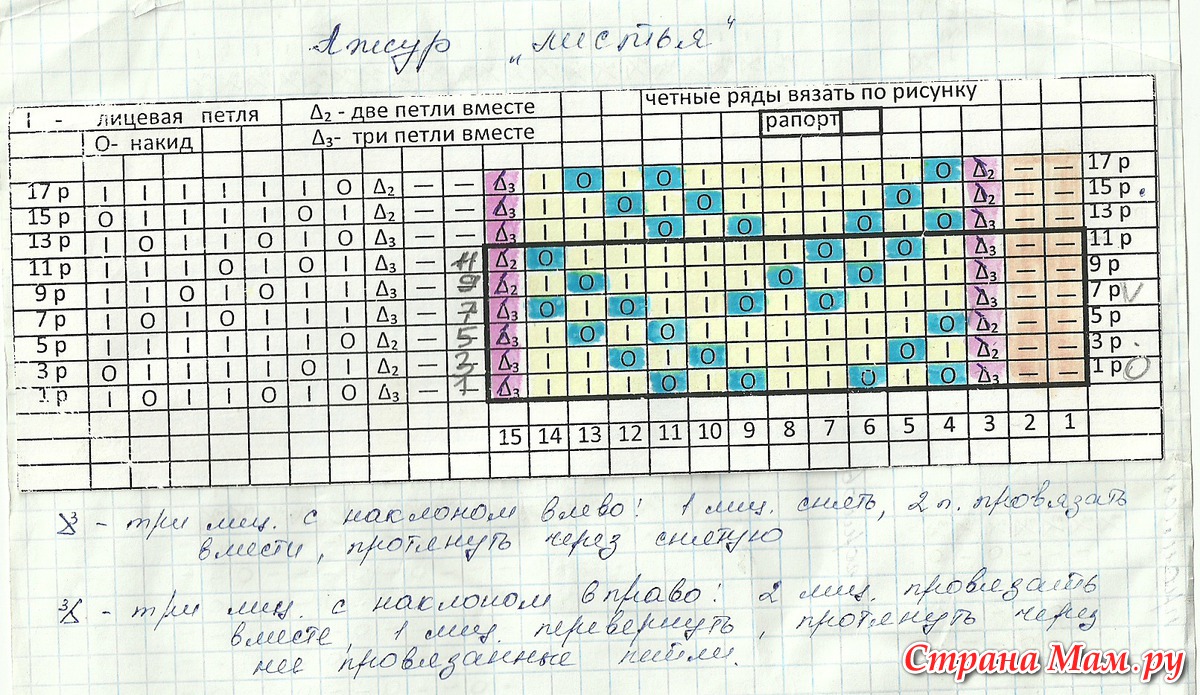 Ажур „листья“
I - лицевая петля Δ₂ - две петли вместе четные ряды вязать по рисунку
О- накид Δ₃- три петли вместе рапорт
17 р I I I I I I O Δ₂ — — Δ₃ I O I O I I I I I I O Δ₂ — — 17 р
15 р O I I I I O I Δ₂ — — Δ₃ I I O I O I I I I O I Δ₂ — — 15 р.
13 р I O I I O I O Δ₃ — — Δ₃ I I I O I O I I O I O Δ₂ — — 13 р
11 р I I I O I O I Δ₃ — 11 Δ₂ O I I I I I I O I O I Δ₃ — — 11 р
9 р I I O I O I I Δ₃ — 9 Δ₂ I O I I I I O I O I I Δ₃ — — 9 р
7 р I O I O I I I Δ₃ — 7 Δ₃ O I O I I O I O I I I Δ₃ — — 7 р V
5 р I I I I I I O Δ₂ — 5 Δ₃ I O I O I I I I I I O Δ₂ — — 5 р
3 р O I I I I O I Δ₂ — 3 Δ₃ I I O I O I I I I O I Δ₂ — — 3 р.
1 р I O I I O I O Δ₃ — 1 Δ₃ I I I O I O I I O I O Δ₃ — — 1 р O
15 14 13 12 11 10 9 8 7 6 5 4 3 2 1
3 - три лиц. с наклоном влево! 1 лиц. снять, 2 п. провязать
вмести, протянуть через снятую
3 - три лиц. с наклоном вправо! 2 лиц. провязать
вместе, 1 лиц. перевернуть, протянуть через
нее провязанные петли.
Страна Мам.ру